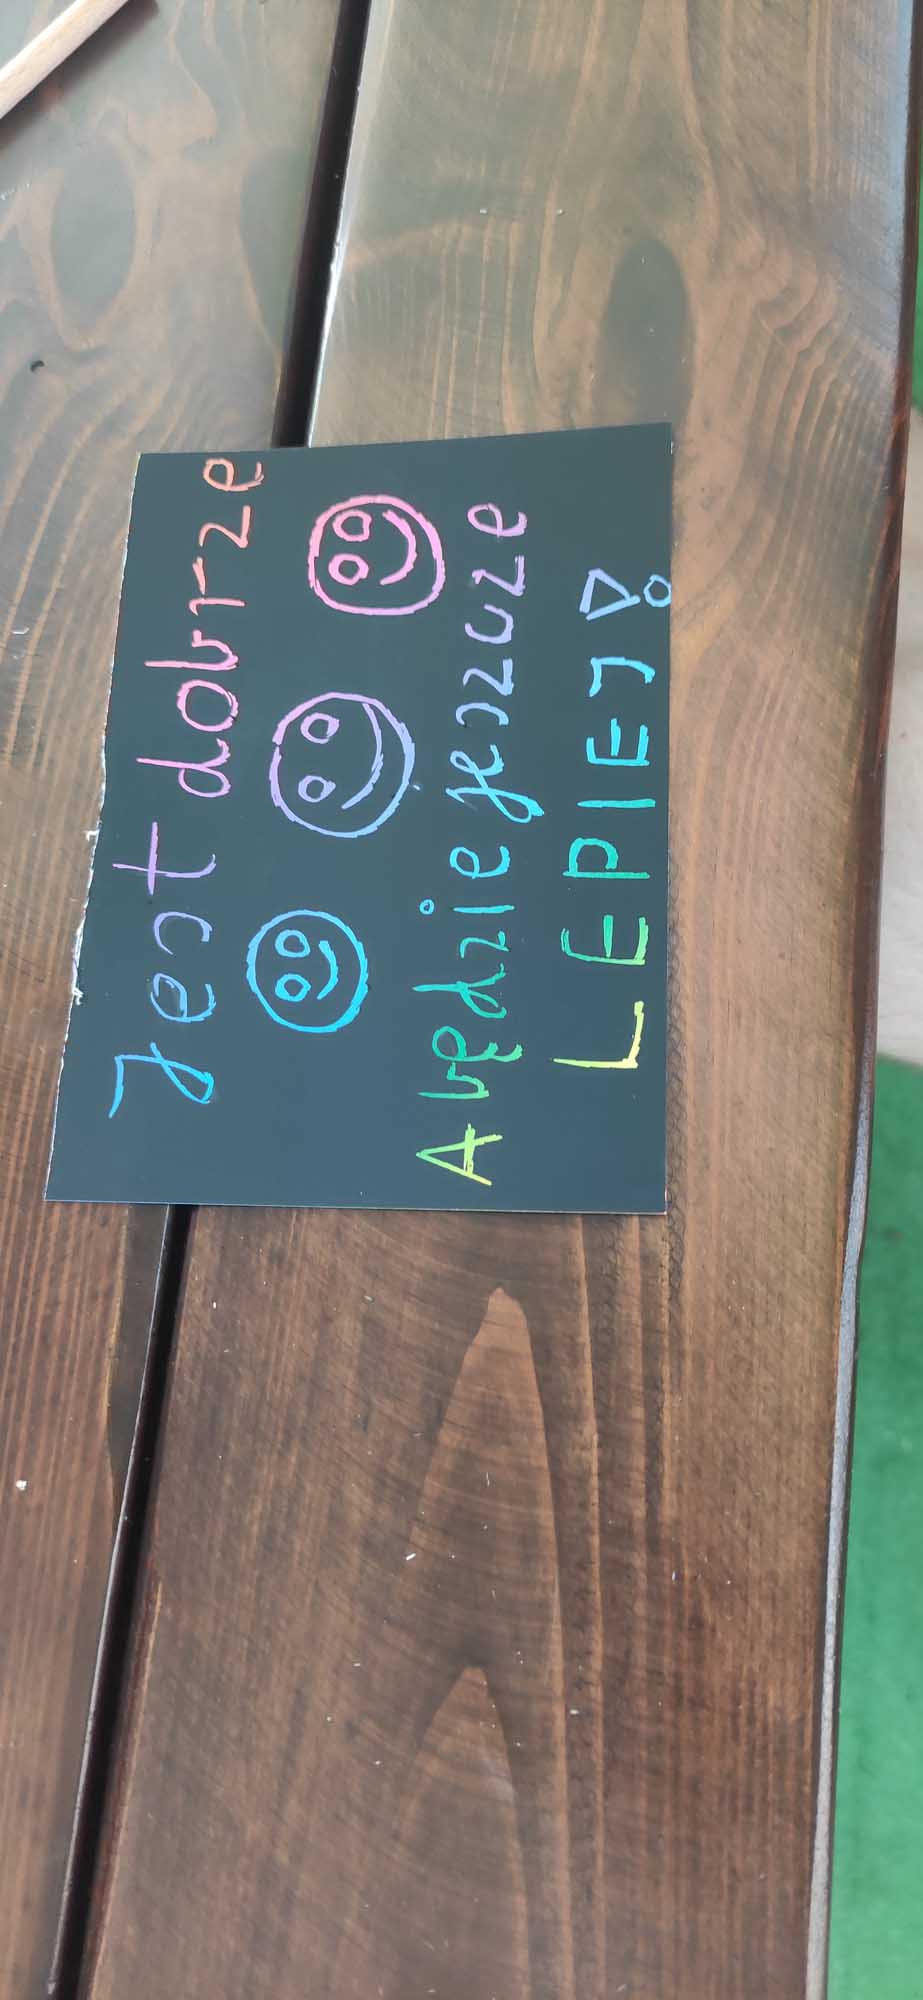 Jest dobrze
A będzie jeszcze
LEPIEJ!